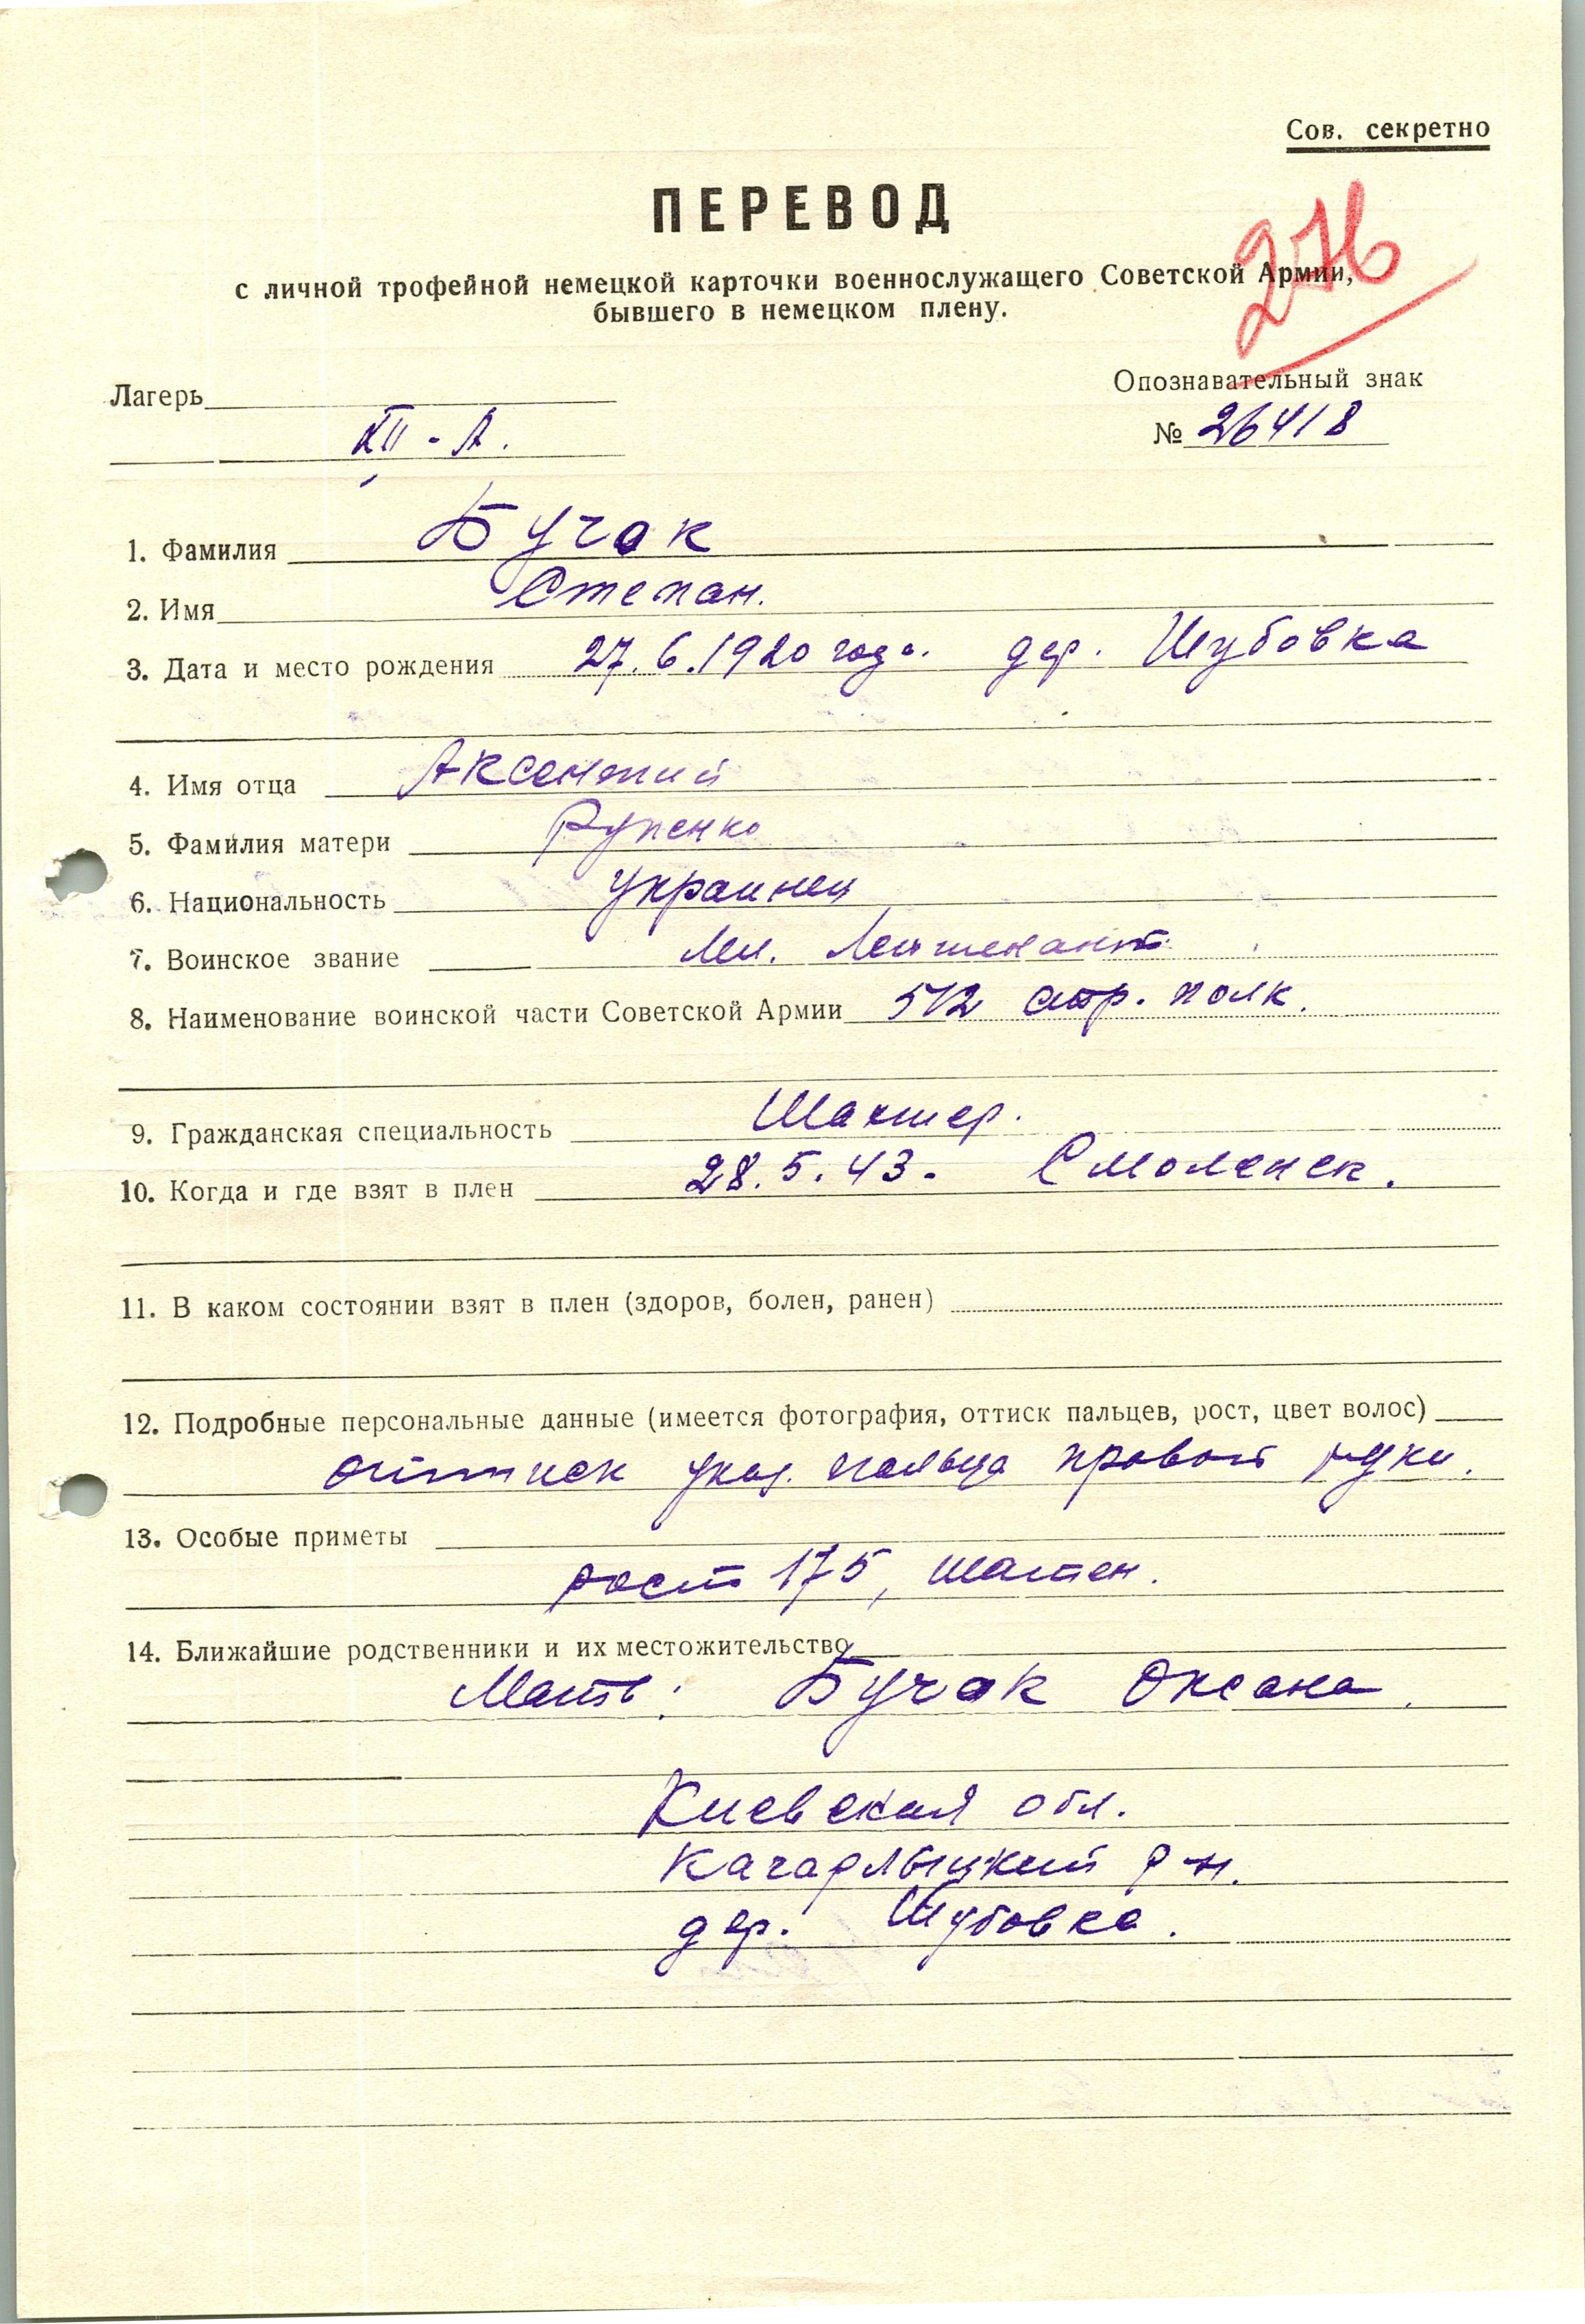 Сов. секретно
ПЕРЕВОД
276
с личной трофейной немецкой карточки военнослужащего Советской Армии,
бывшего в немецком плену.
Лагерь
XII - А.
Опознавательный знак
№ 26418
1. Фамилия Бучак
2. Имя Степан.
3. Дата и место рождения 27.6.1920 года. дер. Шубовка
4. Имя отца Аксентий
5. Фамилия матери Рупенко
6. Национальность украинец
7. Воинское звание Мл. Лейтенант.
8. Наименование воинской части Советской Армии 512 стр. полк.
9. Гражданская специальность Шахтер.
10. Когда и где взят в плен 28.5.43. Смоленск.
11. В каком состоянии взят в плен (здоров, болен, ранен)
12. Подробные персональные данные (имеется фотография, оттиск пальцев, рост, цвет волос)
оттиск указ. пальца правой руки.
13. Особые приметы
рост 175, шатен.
14. Ближайшие родственники и их местожительство
Мать: Бучак Оксана.
Киевская обл.
Кагарлыцкий р-н.
дер. Шубовка.